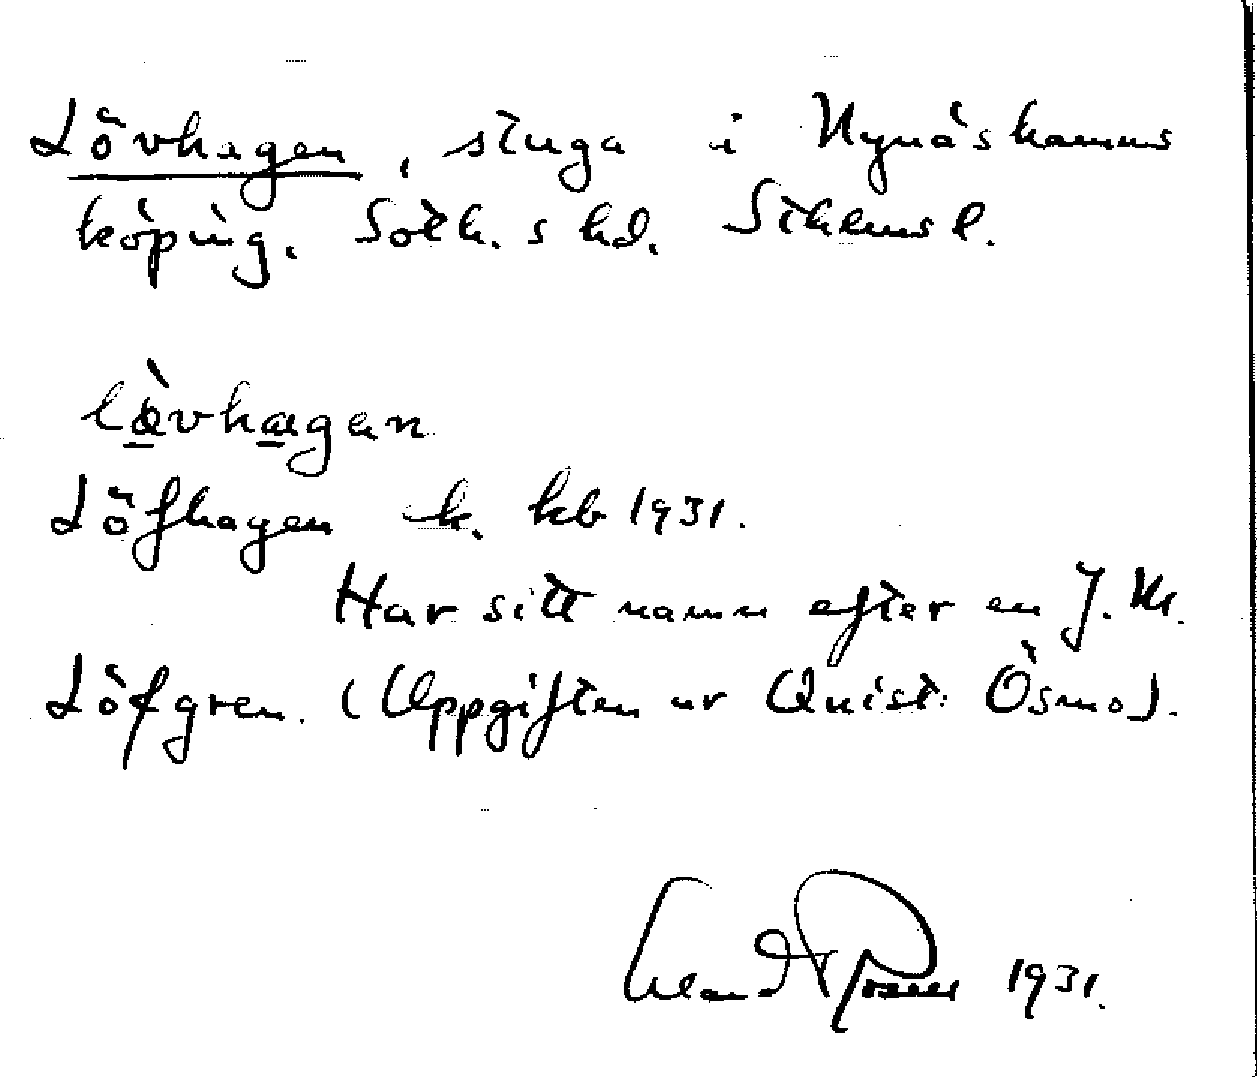 Lövhagen, stuga i Nynäshamns
köping. Soth. s hd. Sthlms l.
lövhagan
Löfhagen h. kb 1931.
Har sitt namn efter en J. M.
Löfgren. (Uppgiften ur Quist: Ösmo).
1931.